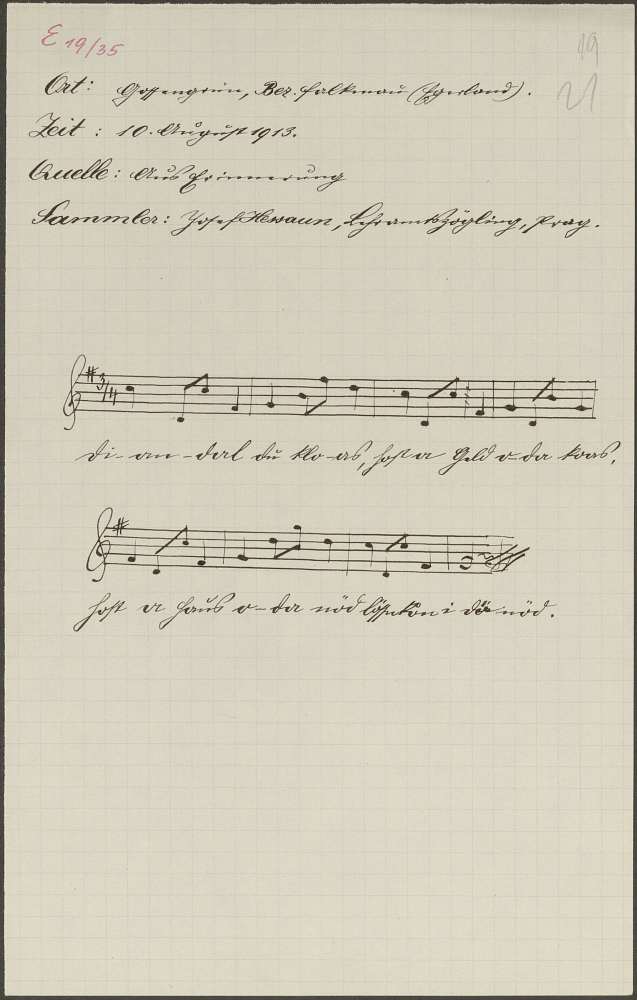 E 19/35
19
21
Ort: Gossengrün, Bez. Falkenau (Egerland).
Zeit: 10. August 1913.
Quelle: Aus Erinnerung
Sammler: Josef Hessaun, Lehramtszögling, Prag.
3/4
Di-an-dal du klo-as, host a Geld o-da koas,
host a Haus o-da nöd i di nöd.